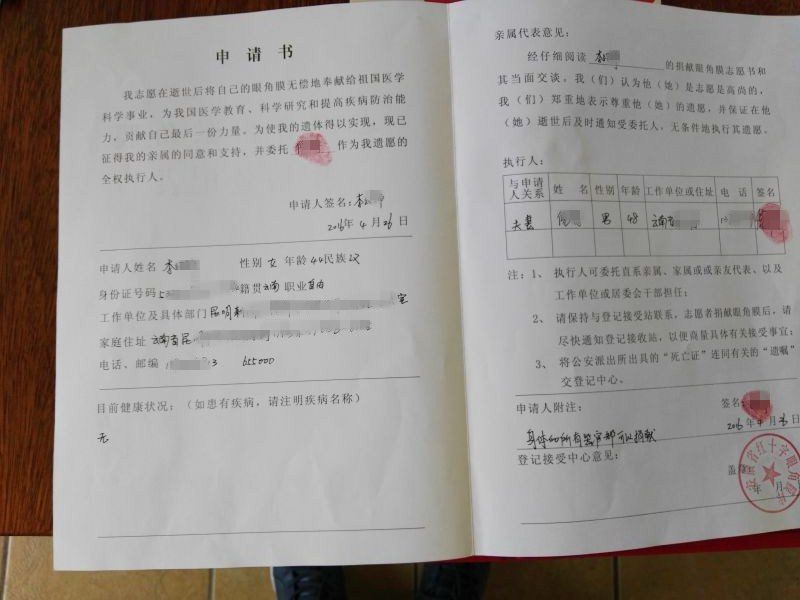 申请书
我志愿在逝世后将自己的眼角膜无偿地奉献给祖国医学
科学事业，为我国医学教育、科学研究和提高疾病防治能
力，贡献自己最后一份力量。为使我的遗体得以实现，现已
征得我的亲属的同意和支持，并委托 作为我遗愿的
全权执行人。
申请人签名：李
2016年4月26日
申请人姓名 李 性别 女 年龄 44 民族 汉
身份证号码 籍贯 云南 职业 自由
工作单位及具体部门 昆明
家庭住址 云南省昆
电话、邮编 3 655000
目前健康状况：（如患有疾病，请注明疾病名称）
无
亲属代表意见：
经仔细阅读 李 的捐献眼角膜志愿书和
其当面交谈。我（们）认为他（她）是志愿是高尚的，
我（们）郑重地表示尊重他（她）的遗愿，并保证在他
（她）逝世后及时通知受委托人，无条件地执行其遗愿。
执行人：
与申请人关系 姓名 性别 年龄 工作单位或住址 电话 签名
夫妻 男 48 云南省
注：1、执行人可委托直系亲属、家属或或亲友代表、以及
工作单位或居委会干部担任；
2、请保持与登记接受站联系，志愿者捐献眼角膜后，请
尽快通知登记接收站，以便商量具体有关接受事宜；
3、将公安派出所出具的“死亡证”连同有关的“遗嘱”
交登记中心。
申请人附注： 签名：
2016年4月26日
身体的所有器官都可以捐献
登记接受中心意见：
盖
年 月
省红十字眼角膜